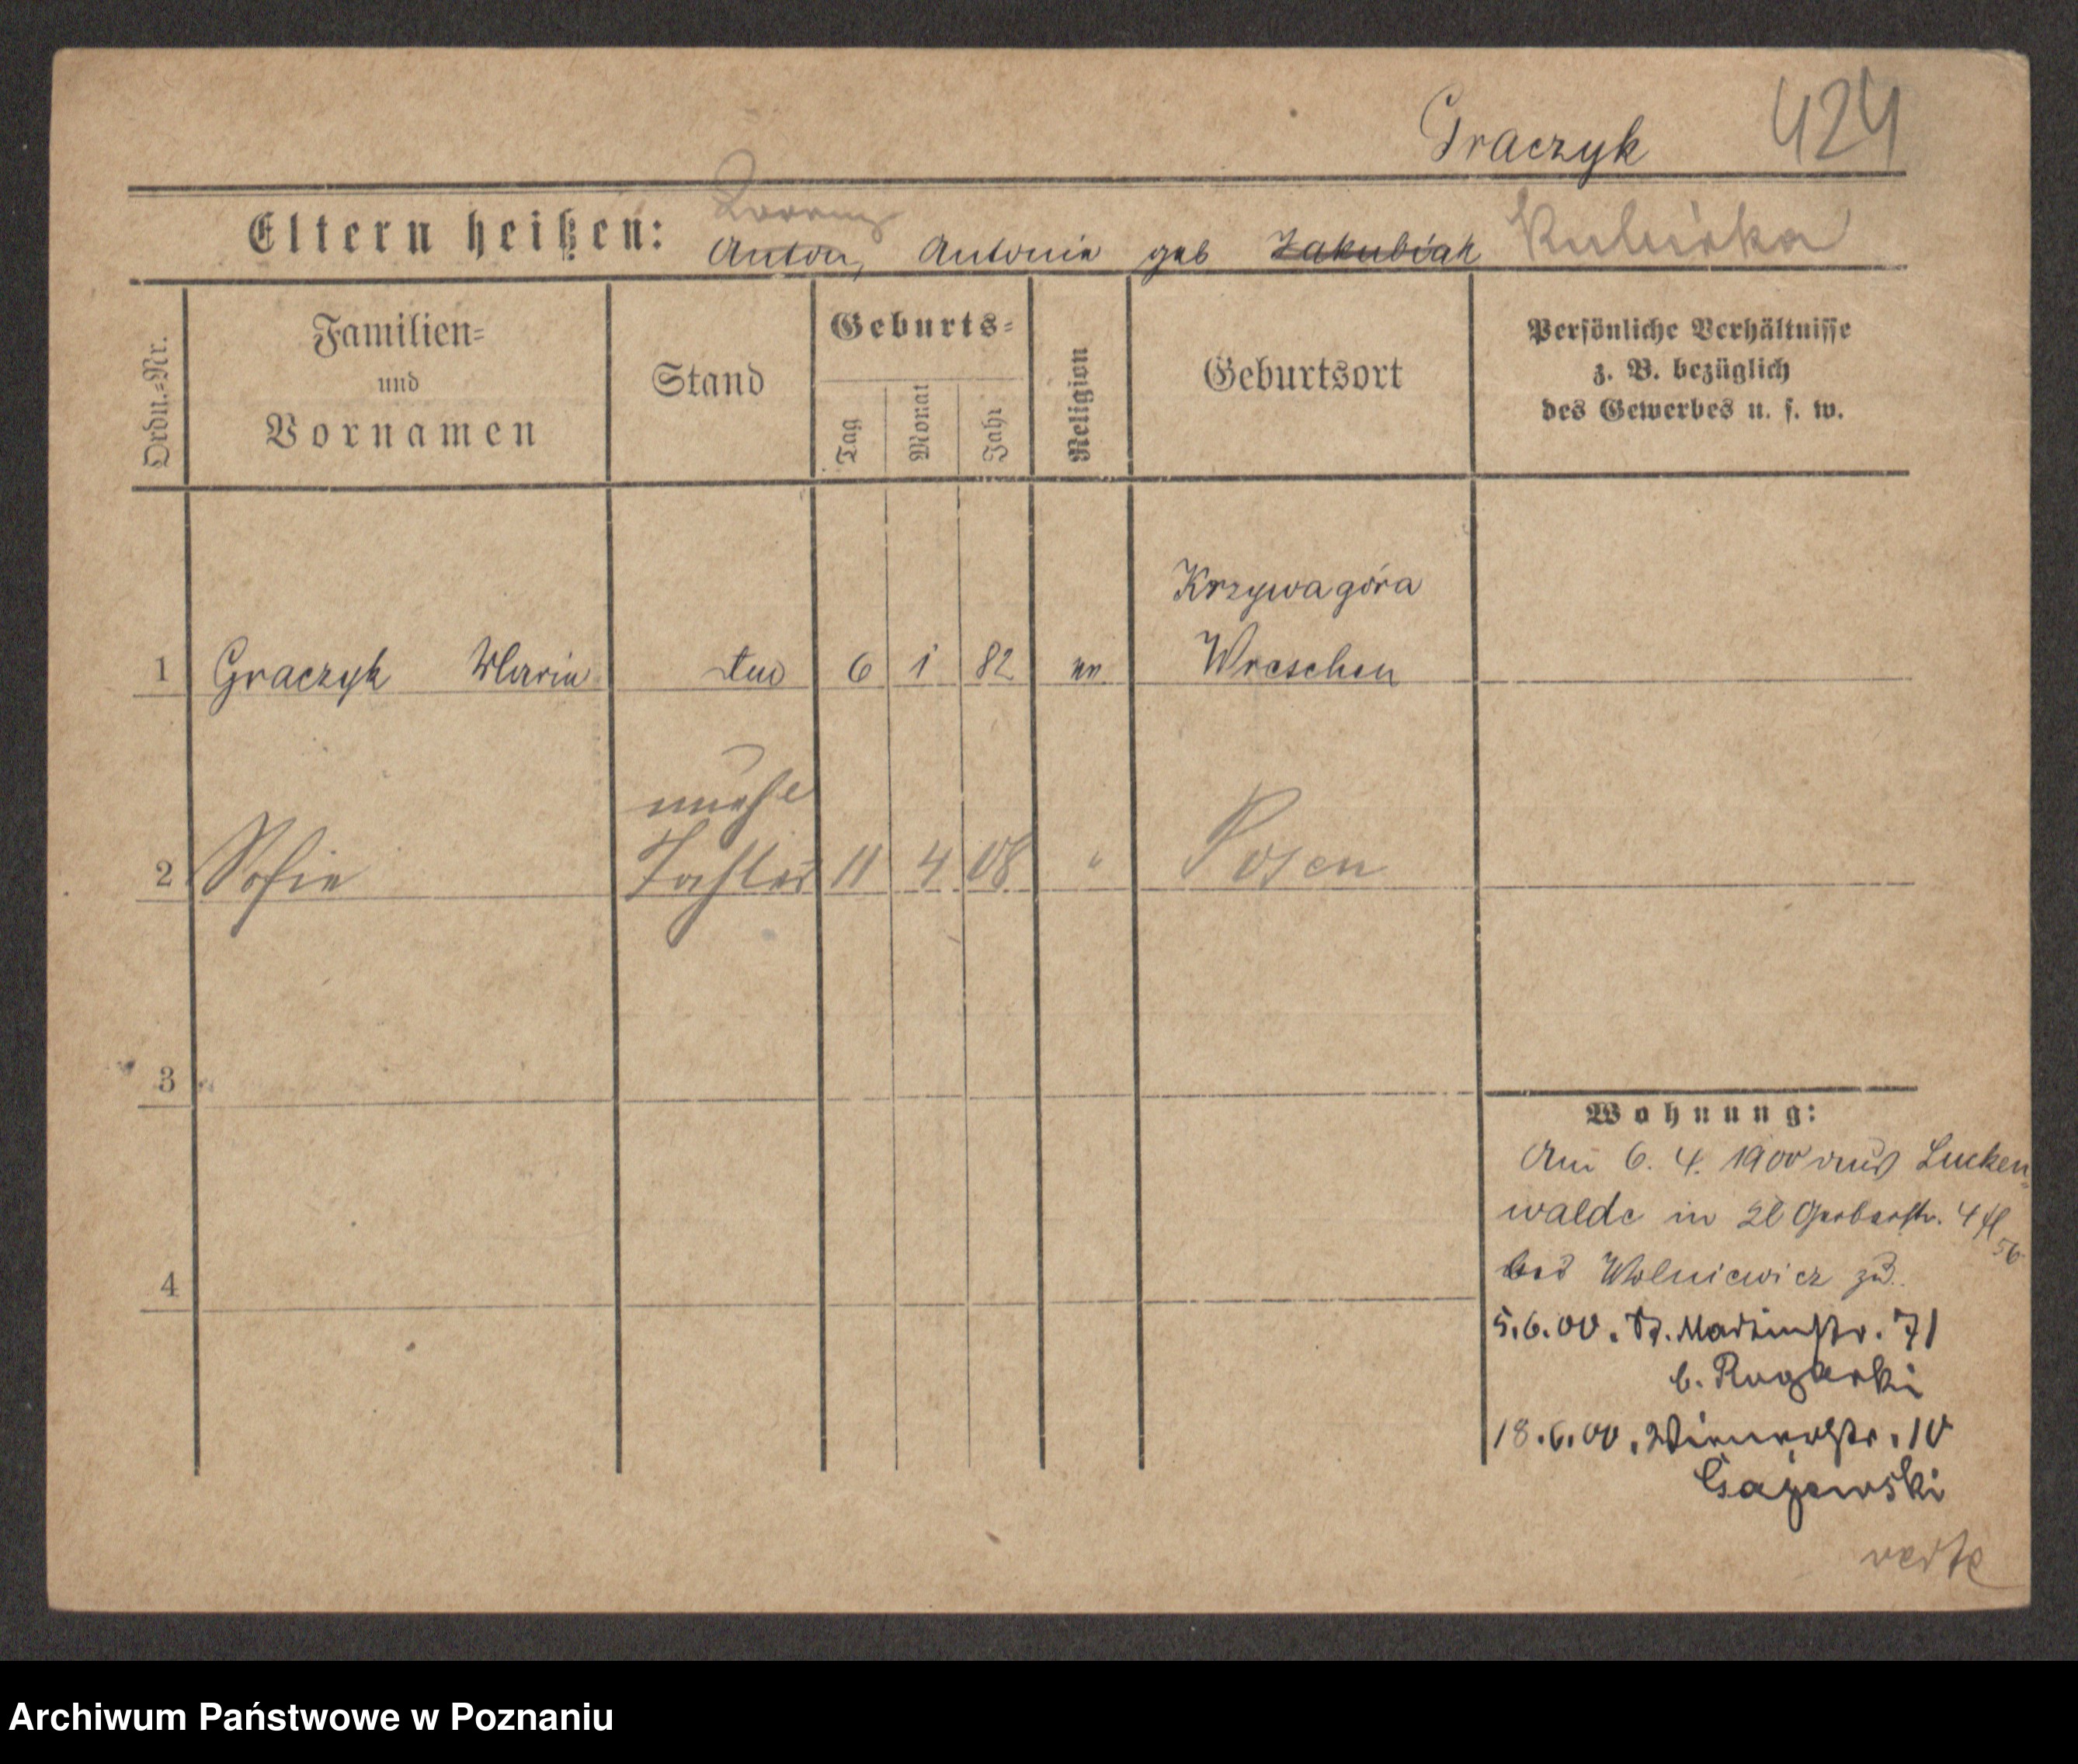 Graczyk 424
Lorenz
Eltern heißen: Anton, Antonie geb Jakubiak Kubiska
Ordn.=Nr.
Familien=
und
Vornamen
Stand
Geburts=
Tag
Monat
Jahr
Religion
Geburtsort
Persönliche Verhältnisse
z. B. bezüglich
des Gewerbes u. s. w.
Krzywagóra
1 Graczyk Marie 6 1 82 Wreschen
unehel
2 Sofie Tochter 11 4 08 " Posen
3
Wohnung:
Am 6. 4. 1900 aus Lucken=
walde in Gerberstr. 4
4
bei Wolniewicz zu.
5.6.00. St. Martinstr. 71
b. Rogacki
18.6.00. Wienerstr. 10
Gajewski
verte
Archiwum Państwowe w Poznaniu